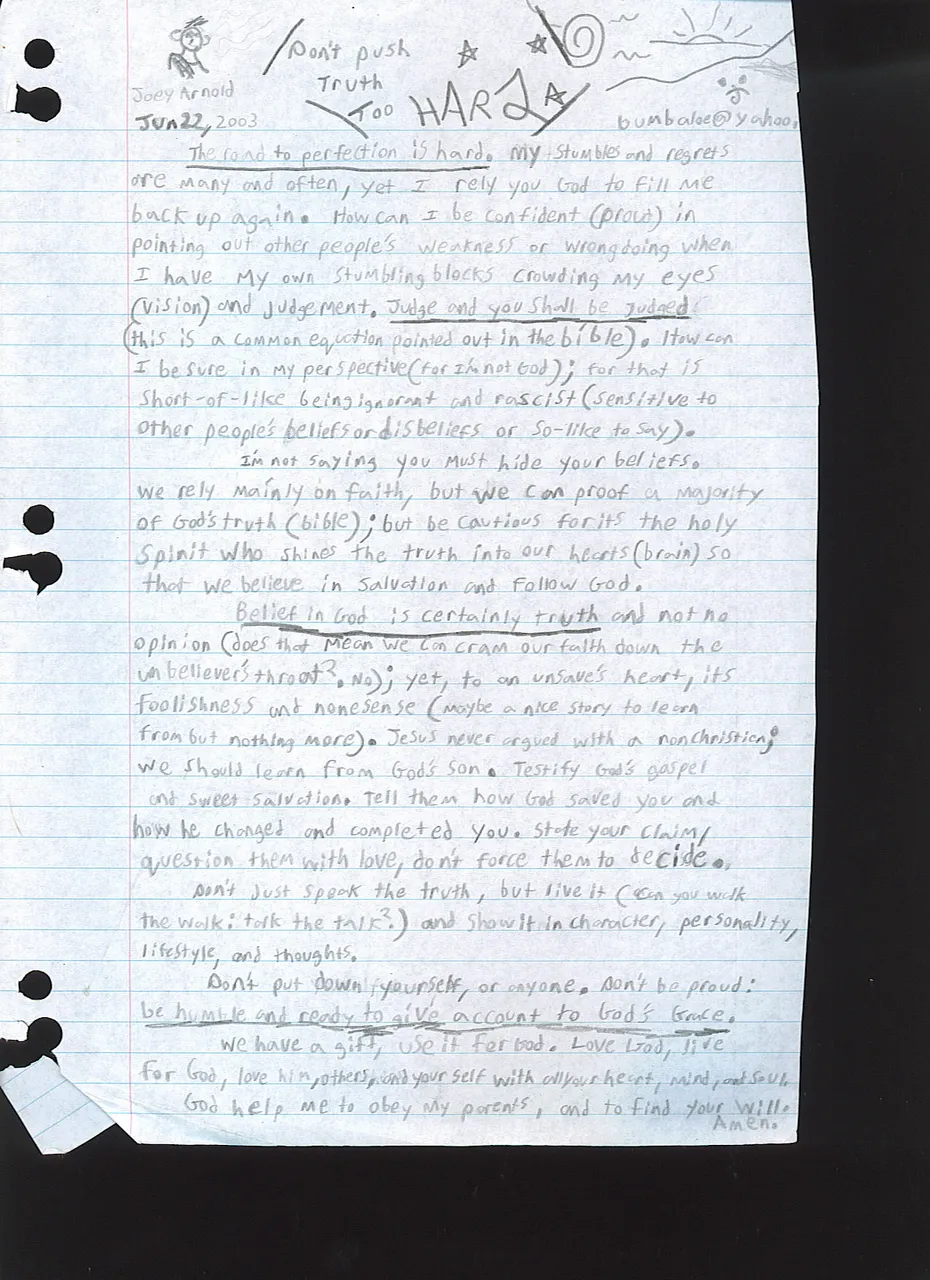 Don't push
Truth
Too HARD
Joey Arnold
Jun 22, 2003
bumbaloe@yahoo.
The road to perfection is hard. My stumbles and regrets
are many and often, yet I rely you God to fill me
back up again. How can I be confident (proud) in
pointing out other people's weakness or wrongdoing when
I have my own stumbling blocks crowding my eyes
(vision) and judgement. Judge and you shall be judged
(this is a common equation pointed out in the bible). How can
I be sure in my perspective (for I'm not God); for that is
short-of-like being ignorant and rascist (sensitive to
other people's beliefs or disbeliefs or so-like to say).
I'm not saying you must hide your beliefs.
We rely mainly on faith, but we can proof a majority
of God's truth (bible); but be cautious for its the holy
Spirit who shines the truth into our hearts (brain) so
that we believe in salvation and follow God.
Belief in God is certainly truth and not no
opinion (does that mean we can cram our faith down the
unbeliever's throat?. No); yet, to an unsave's heart, its
foolishness and nonesense (maybe a nice story to learn
from but nothing more). Jesus never argued with a nonchristian;
we should learn from God's son. Testify God's gospel
and sweet salvation. Tell them how God saved you and
how he changed and completed you. State your claim,
question them with love, don't force them to decide.
Don't just speak the truth, but live it (can you walk
the walk: talk the talk?) and show it in character, personality,
lifestyle, and thoughts.
Don't put down yourself, or anyone. Don't be proud:
be humble and ready to give account to God's Grace.
We have a gift, use it for God. Love God, live
for God, love him, others, and your self with all your heart, mind, and soul.
God help me to obey my parents, and to find your will.
Amen.